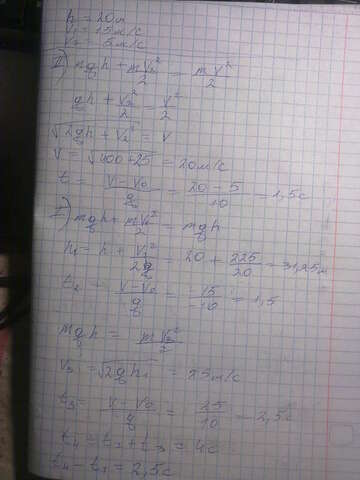 h = 20м
V₁ = 15м/с
V₂ = 5м/с
II) mgh + mV₂²/2 = mV²/2
gh + V₂²/2 = V²/2
√(2gh + V₂²) = V
V = √(400+25) = 20м/с
t₁ = (V−V₀)/g = (20−5)/10 = 1,5с
I) mgh + mV₁²/2 = mgh
h₁ = h + V₁²/2g = 20 + 225/20 = 31,25м
t₂ = (V−V₀)/g = −15/−10 = 1,5
mgh = mV₃²/2
V₃ = √(2gh₁) = 25м/с
t₃ = (V−V₀)/g = 25/10 = 2,5с
t₄ = t₂ + t₃ = 4с
t₄ − t₁ = 2,5с